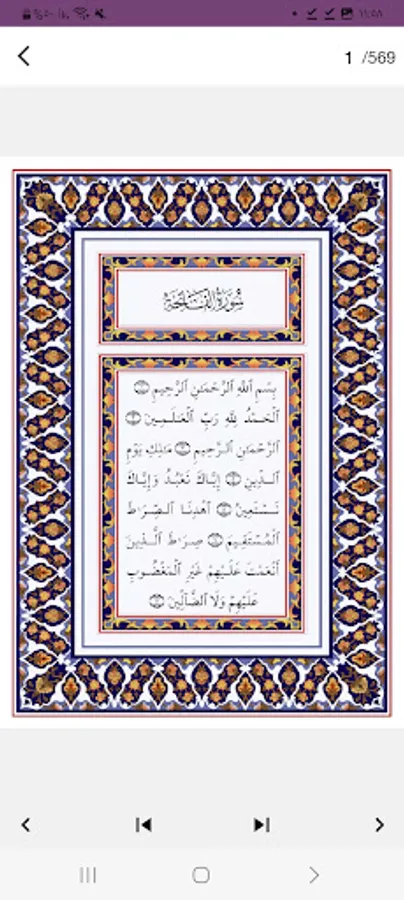 ۱۱:۵۸
1 /569
سُورَةُ الْفَاتِحَةِ
بِسْمِ ٱللَّهِ ٱلرَّحْمَٰنِ ٱلرَّحِيمِ
ٱلْحَمْدُ لِلَّهِ رَبِّ ٱلْعَٰلَمِينَ
ٱلرَّحْمَٰنِ ٱلرَّحِيمِ مَٰلِكِ يَوْمِ
ٱلدِّينِ إِيَّاكَ نَعْبُدُ وَإِيَّاكَ
نَسْتَعِينُ ٱهْدِنَا ٱلصِّرَٰطَ
ٱلْمُسْتَقِيمَ صِرَٰطَ ٱلَّذِينَ
أَنْعَمْتَ عَلَيْهِمْ غَيْرِ ٱلْمَغْضُوبِ
عَلَيْهِمْ وَلَا ٱلضَّآلِّينَ